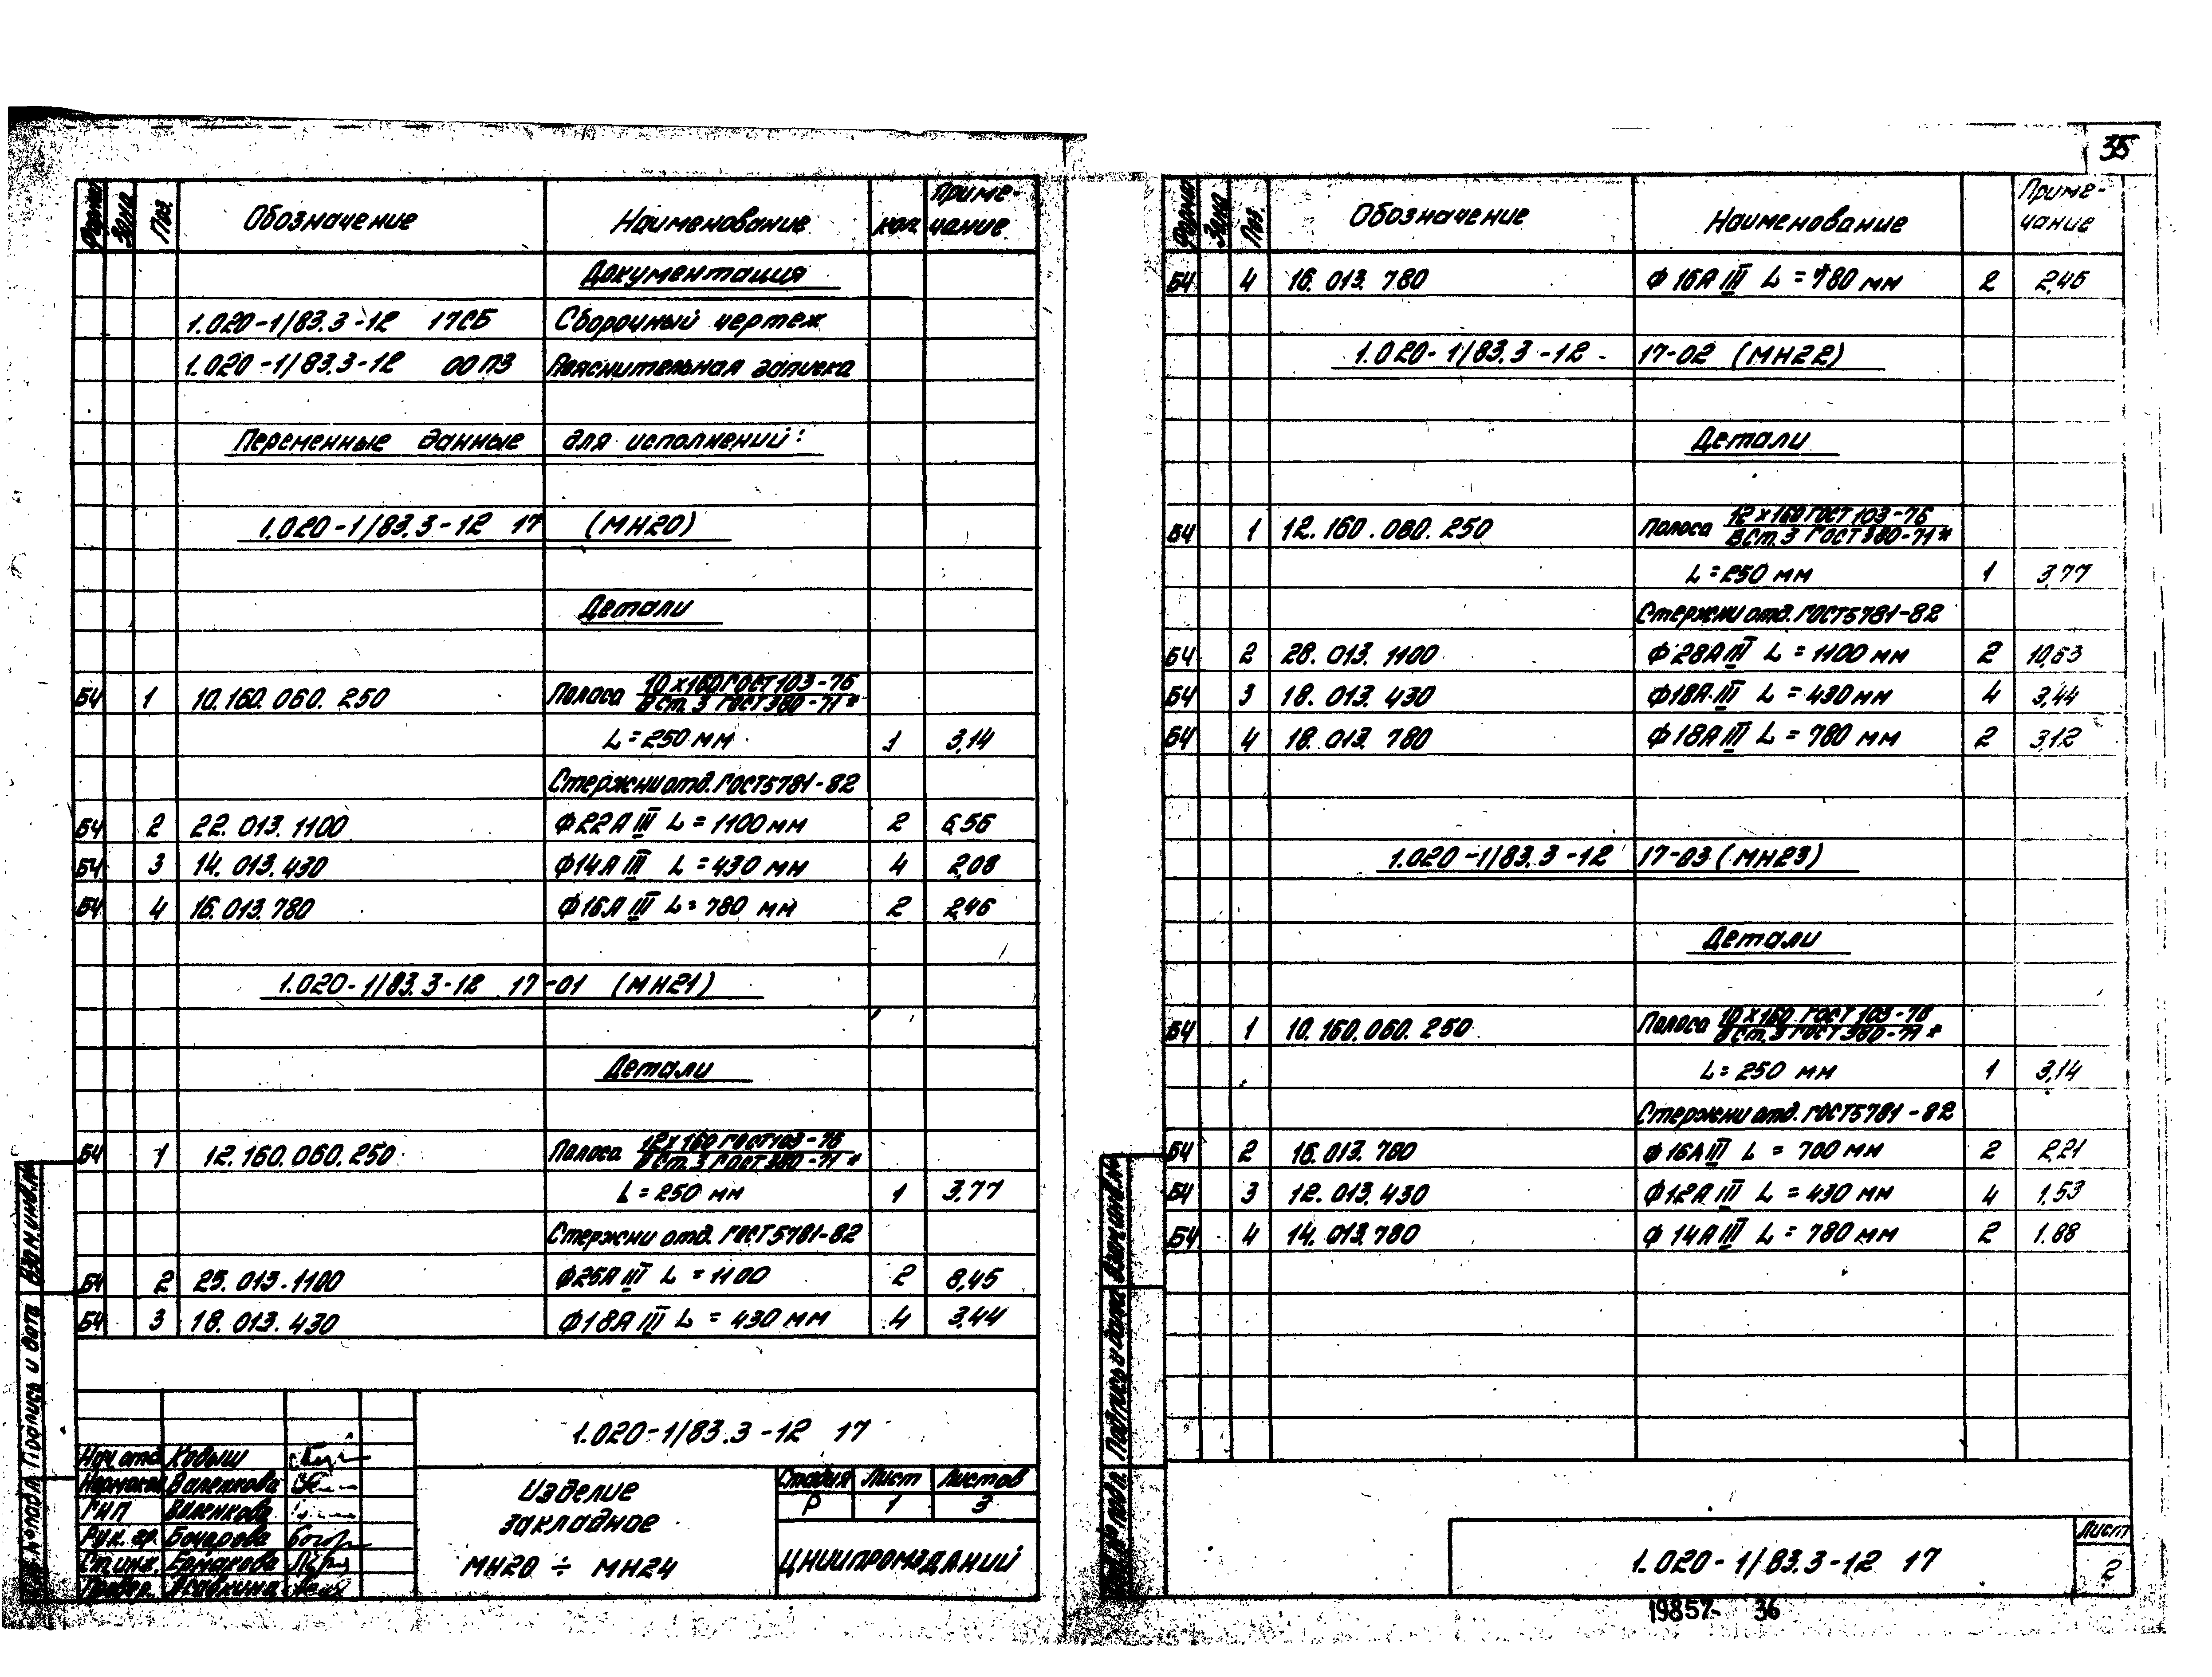 Формат Зона Поз. Обозначение Наименование кол. Приме-
чание
Документация
1.020-1/83.3-12 17СБ Сборочный чертеж
1.020-1/83.3-12 00ПЗ Пояснительная записка
Переменные данные для исполнений:
1.020-1/83.3-12 17 (МН20)
Детали
БЧ 1 10.160.060.250 Полоса 10х160 ГОСТ 103-76
ВСт.3 ГОСТ 380-71*
L=250 мм 1 3,14
Стержни отд. ГОСТ 5781-82
БЧ 2 22.013.1100 Ф22АIII L=1100 мм 2 6,56
БЧ 3 14.013.430 Ф14АIII L=430 мм 4 2,08
БЧ 4 16.013.780 Ф16АIII L=780 мм 2 2,46
1.020-1/83.3-12 17-01 (МН21)
Детали
БЧ 1 12.160.060.250 Полоса 12х160 ГОСТ 103-76
ВСт.3 ГОСТ 380-71*
L=250 мм 1 3,77
Стержни отд. ГОСТ 5781-82
БЧ 2 25.013.1100 Ф25АIII L=1100 2 8,45
БЧ 3 18.013.430 Ф18АIII L=430 мм 4 3,44
1.020-1/83.3-12 17
Нач. отд. Кодыш
Нормокон. Валенкова
ГИП Виленкова
Рук. гр. Бочарова
Ст.инж. Ермакова
Провер.
Изделие
закладное
МН20 ÷ МН24
Стадия Лист Листов
Р 1 3
ЦНИИПРОМЗДАНИЙ
Инв.№подл. Подпись и дата Взам.инв.№
35
Формат Зона Поз. Обозначение Наименование Приме-
чание
БЧ 4 16.013.780 Ф16АIII L=780 мм 2 2,46
1.020-1/83.3-12 - 17-02 (МН22)
Детали
БЧ 1 12.160.060.250 Полоса 12х160 ГОСТ 103-76
ВСт.3 ГОСТ 380-71*
L=250 мм 1 3,77
Стержни отд. ГОСТ 5781-82
БЧ 2 28.013.1100 Ф28АIII L=1100 мм 2 10,63
БЧ 3 18.013.430 Ф18АIII L=430 мм 4 3,44
БЧ 4 18.013.780 Ф18АIII L=780 мм 2 3,12
1.020-1/83.3-12 17-03 (МН23)
Детали
БЧ 1 10.160.060.250 Полоса 10х160 ГОСТ 103-76
ВСт.3 ГОСТ 380-71*
L=250 мм 1 3,14
Стержни отд. ГОСТ 5781-82
БЧ 2 16.013.780 Ф16АIII L=700 мм 2 2,21
БЧ 3 12.013.430 Ф12АIII L=430 мм 4 1,53
БЧ 4 14.013.780 Ф14АIII L=780 мм 2 1.88
Инв.№ подл. Подпись и дата Взам.инв.№
1.020-1/83.3-12 17
Лист
2
19857- 36